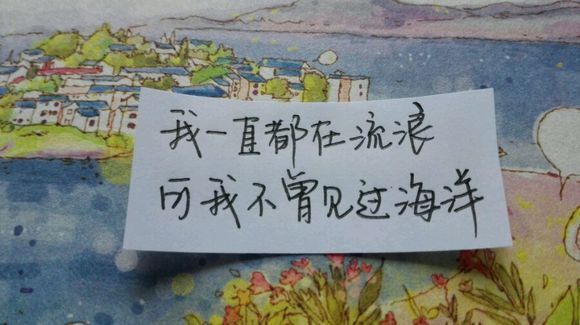 我一直都在流浪
可我不曾见过海洋